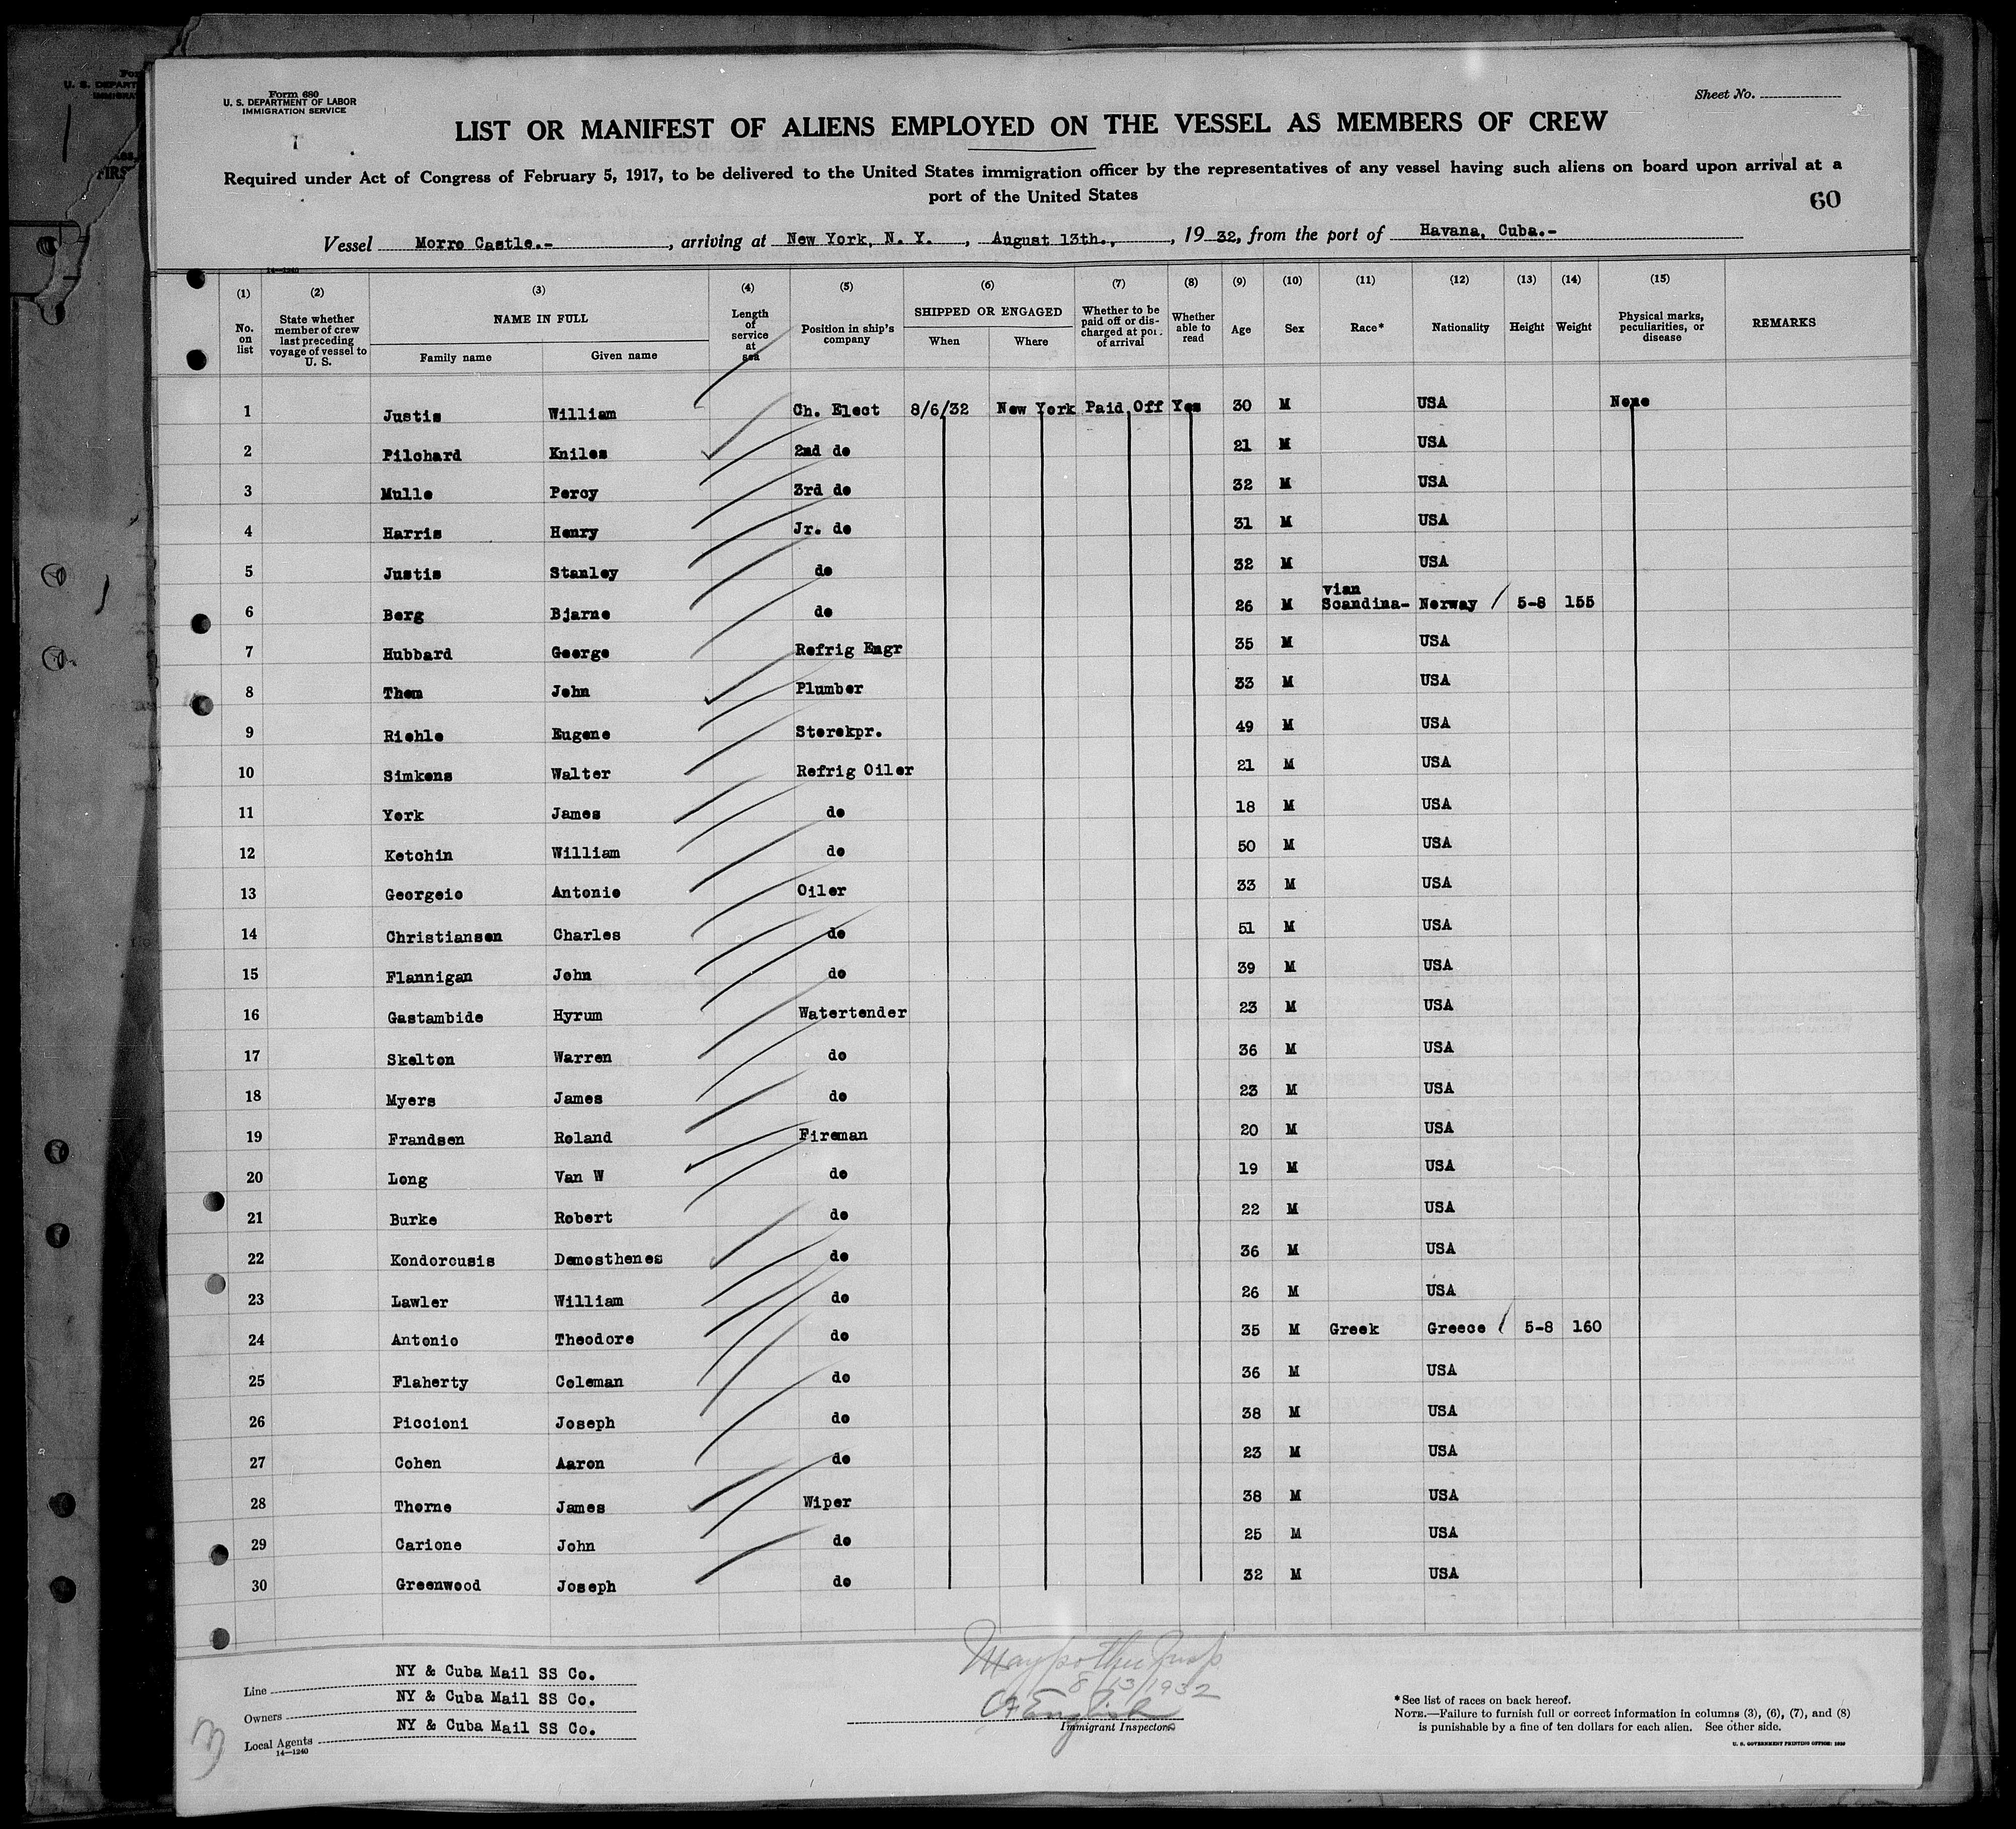 Form 680
U. S. DEPARTMENT OF LABOR
IMMIGRATION SERVICE
Sheet No.
LIST OR MANIFEST OF ALIENS EMPLOYED ON THE VESSEL AS MEMBERS OF CREW
Required under Act of Congress of February 5, 1917, to be delivered to the United States immigration officer by the representatives of any vessel having such aliens on board upon arrival at a
port of the United States
60
Vessel Morro Castle.- , arriving at New York, N. Y. , August 13th., , 19 32, from the port of Havana, Cuba.-
14—1240
(1) (2) (3) (4) (5) (6) (7) (8) (9) (10) (11) (12) (13) (14) (15)
No. on list
State whether member of crew last preceding voyage of vessel to U. S.
NAME IN FULL
Family name Given name
Length of service at sea
Position in ship's company
SHIPPED OR ENGAGED
When Where
Whether to be paid off or discharged at port of arrival
Whether able to read
Age Sex Race* Nationality Height Weight
Physical marks, peculiarities, or disease
REMARKS
1 Justis William Ch. Elect 8/6/32 New York Paid Off Yes 30 M USA None
2 Pilchard Kniles 2nd do 21 M USA
3 Mulle Percy 3rd do 32 M USA
4 Harris Henry Jr. do 31 M USA
5 Justis Stanley do 32 M USA
6 Berg Bjarne do 26 M Scandinavian Norway 5-8 155
7 Hubbard George Refrig Engr 35 M USA
8 Thom John Plumber 33 M USA
9 Riehle Eugene Storekpr. 49 M USA
10 Simkens Walter Refrig Oiler 21 M USA
11 York James do 18 M USA
12 Ketchin William do 50 M USA
13 Georgeio Antonio Oiler 33 M USA
14 Christiansen Charles do 51 M USA
15 Flannigan John do 39 M USA
16 Gastambide Hyrum Watertender 23 M USA
17 Skelton Warren do 36 M USA
18 Myers James do 23 M USA
19 Frandsen Roland Fireman 20 M USA
20 Long Van W do 19 M USA
21 Burke Robert do 22 M USA
22 Kondorcusis Demosthenes do 36 M USA
23 Lawler William do 26 M USA
24 Antonio Theodore do 35 M Greek Greece 5-8 160
25 Flaherty Coleman do 36 M USA
26 Piccioni Joseph do 38 M USA
27 Cohen Aaron do 23 M USA
28 Thorne James Wiper 38 M USA
29 Carione John do 25 M USA
30 Greenwood Joseph do 32 M USA
Line NY & Cuba Mail SS Co.
Owners NY & Cuba Mail SS Co.
Local Agents NY & Cuba Mail SS Co.
14—1240
8/13/1932
English
Immigrant Inspector
*See list of races on back hereof.
NOTE.—Failure to furnish full or correct information in columns (3), (6), (7), and (8)
is punishable by a fine of ten dollars for each alien. See other side.
U. S. GOVERNMENT PRINTING OFFICE: 1930